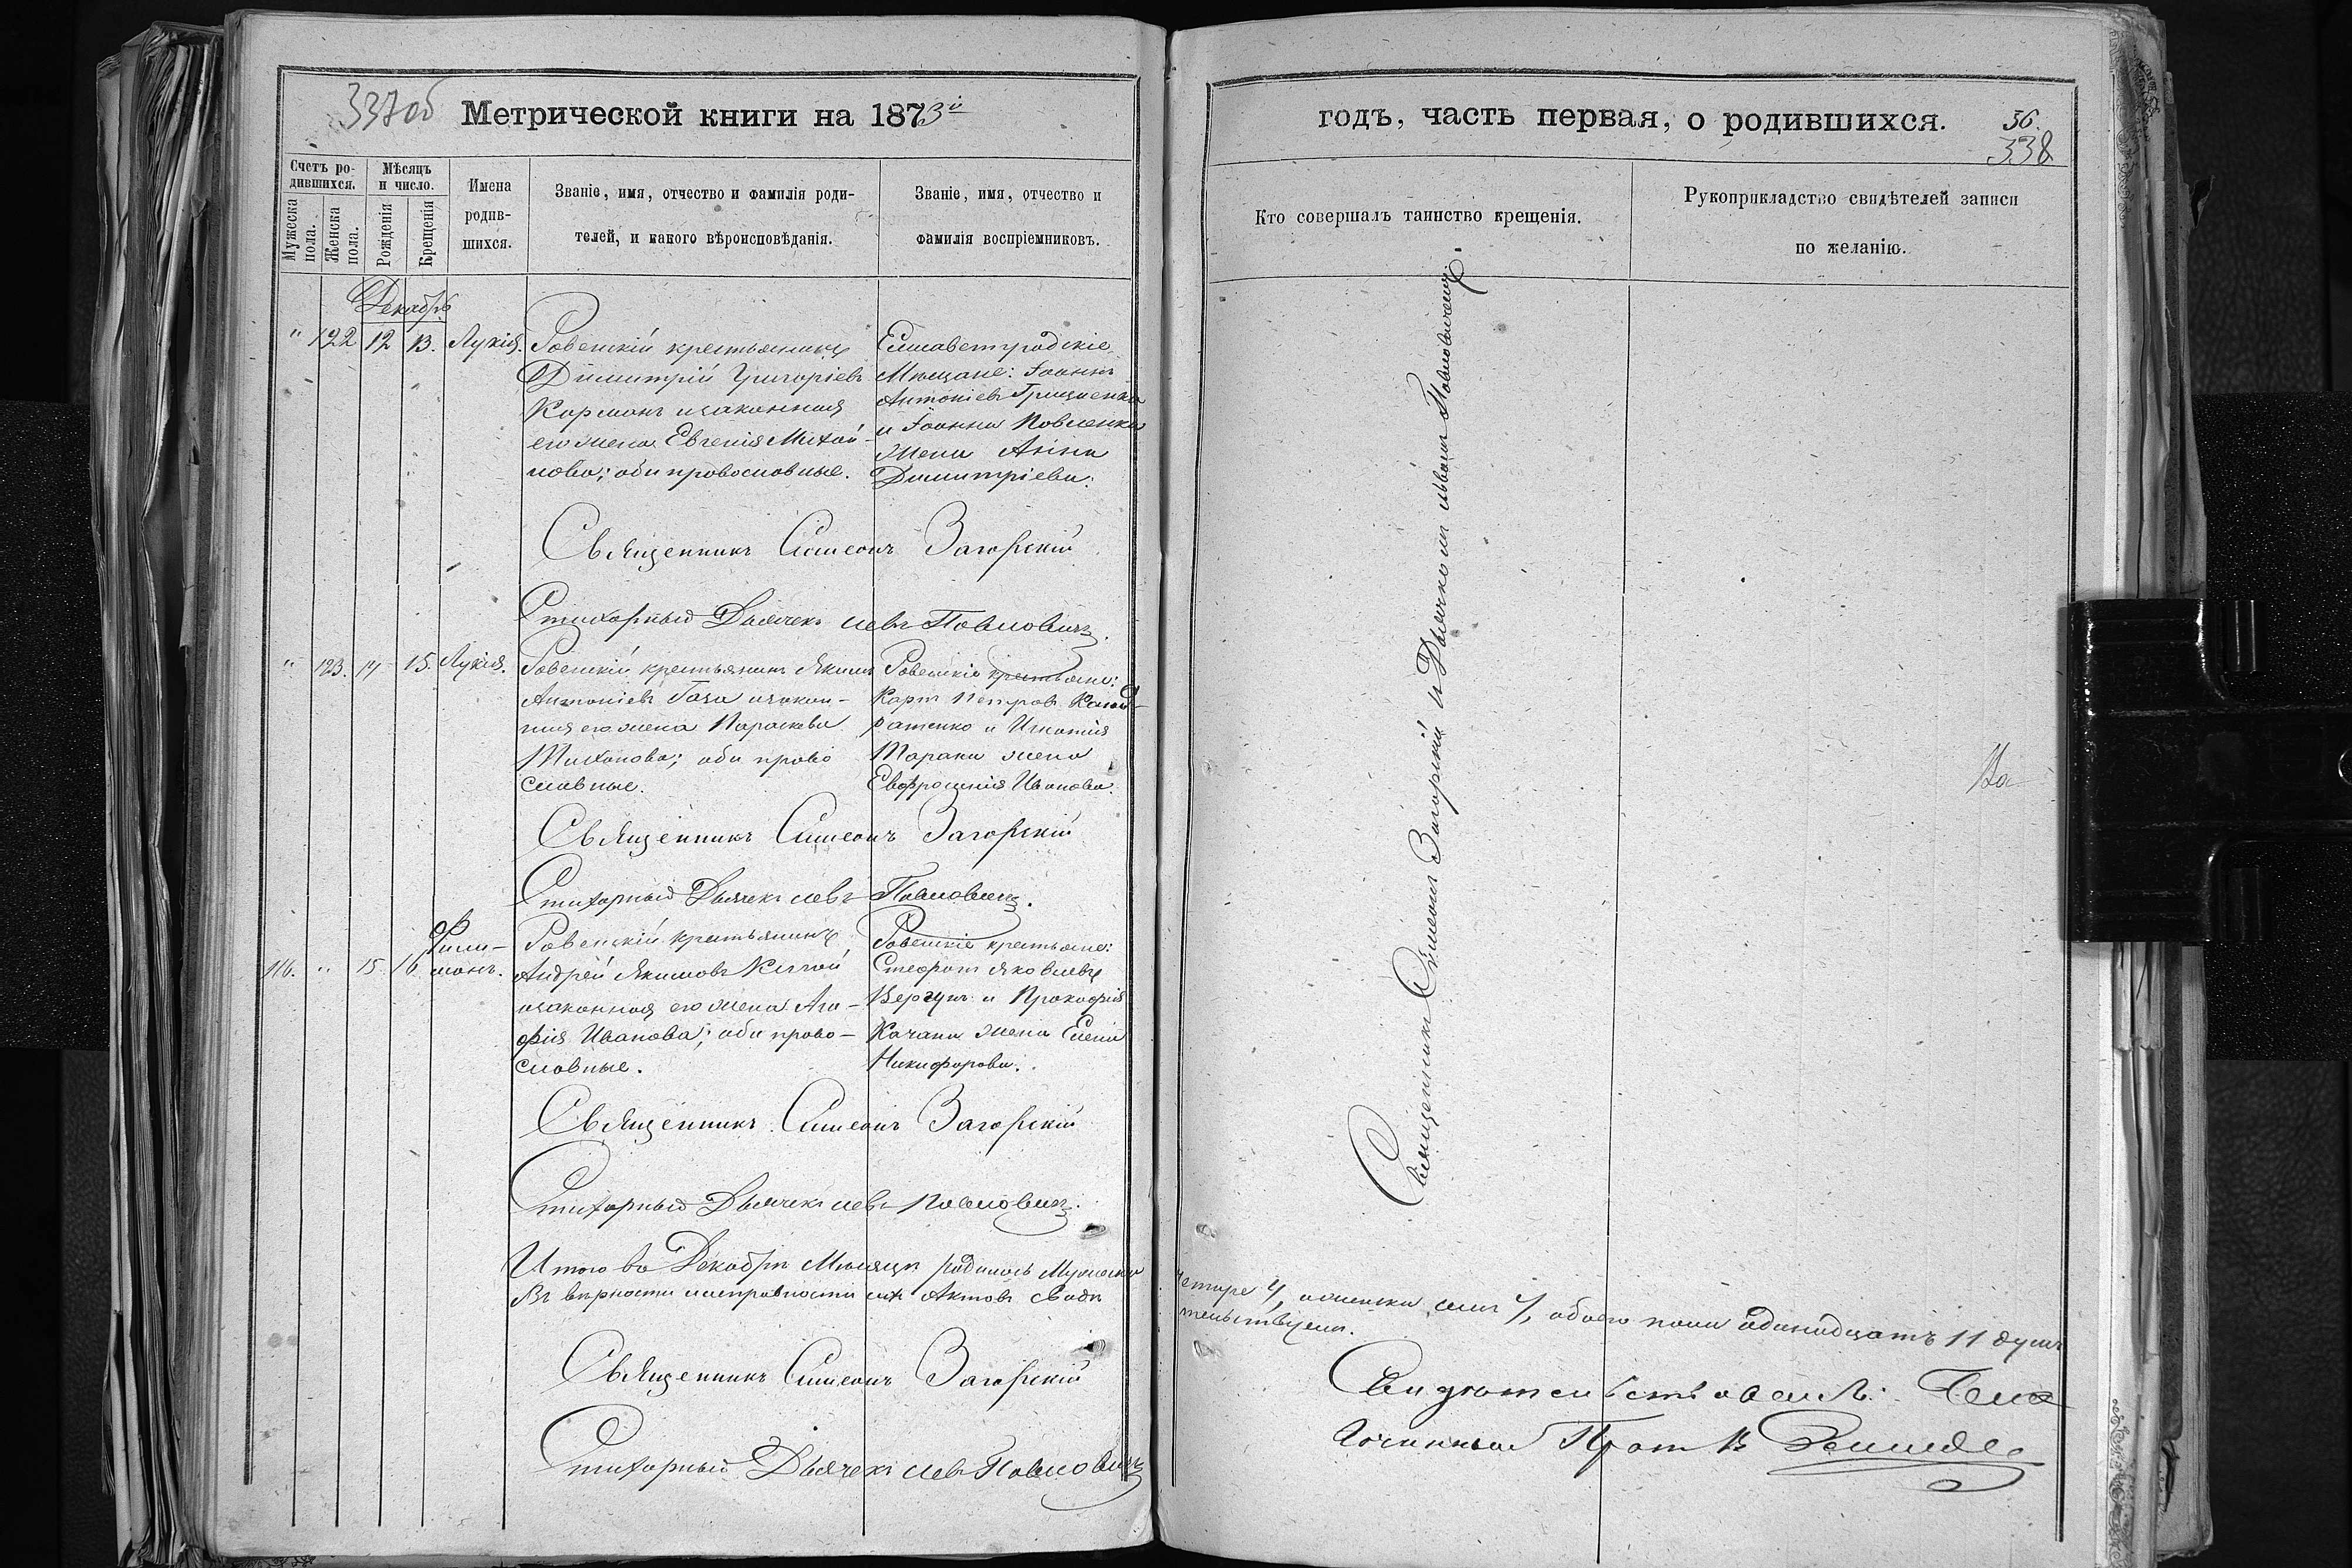 337об
Метрической книги на 1873й
Счетъ ро-
дившихся.
Мѣсяцъ
и число.
Имена
родив-
шихся.
Званіе, имя, отчество и фамилія роди-
телей, и какого вѣроисповѣданія.
Званіе, имя, отчество и
фамилія воспріемниковъ.
Мужеска
пола.
Женска
пола.
Рожденія
Крещенія
Декабрь
" 122 12 13. Лукія.
Ровенскій крестьянинъ
Димитрій Григоріевъ
Корманъ и законная
его жена Евгенія Михай-
лова; оба православные.
Елисаветградскіе
Мѣщане: Іоаннъ
Антоніевъ Грищенко
и Іоанна Павленка
жена Анна
Димитріева.
Священникъ Симеонъ Загорскій
Стихарный Дьячекъ Левъ Павловичъ.
" 123. 14 15. Лукія.
Ровенскій крестьянинъ Якимъ
Антоніевъ Гоза и закон-
ная его жена Параскева
Тихонова; оба право
славные.
Ровенскіе крестьяне:
Карпъ Петровъ
и Игнатія
Тарана жена
Евфросинія Иванова.
Священникъ Симеонъ Загорскій
Стихарный Дьячекъ Левъ Павловичъ.
116. " 15 16
Фили-
монъ.
Ровенскій крестьянинъ
Андрей Якимовъ
и законная его жена Ага-
фія Иванова; оба право-
славные.
Ровенскіе крестьяне:
Стефанъ Яковлевъ
Вергунъ и Прокофія
Качана жена Елена
Никифорова.
Священникъ Симеонъ Загорскій
Стихарный Дьячекъ Левъ Павловичъ.
Итого въ Декабрѣ Мѣсяцѣ родилось Мужеска
Въ вѣрности и исправности сихъ Актовъ свидѣ
Священникъ Симеонъ Загорскій
Стихарный Дьячекъ Левъ Павловичъ
годъ, часть первая, о родившихся.
36.
338
Кто совершалъ таинство крещенія.
Рукоприкладство свидѣтелей записи
по желанію.
Священникъ Симеонъ Загорскій и Дьячкомъ Львомъ Павловичемъ
четыре 4, а женска семь 7, обоего пола одинадцать 11 душъ
тельствуемъ.
Свидѣтельствовалъ: Бла
гочинный Прот. В.